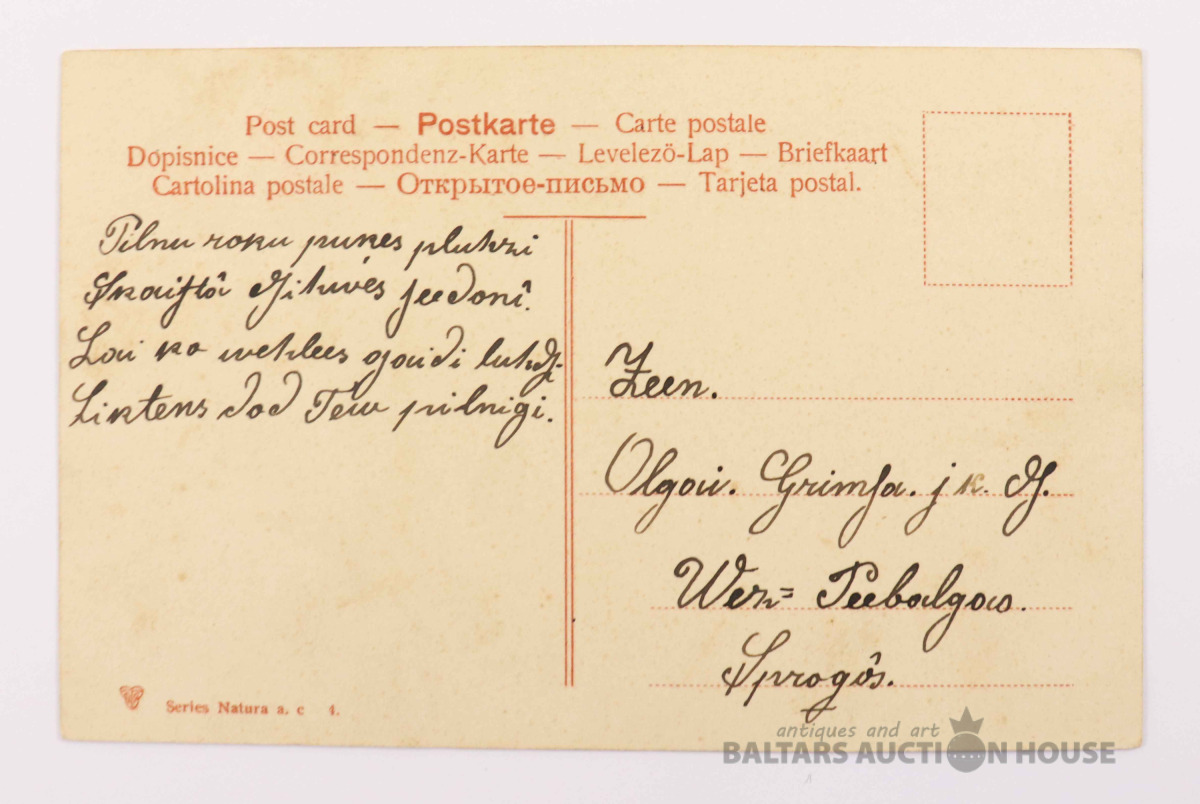 Post card — Postkarte — Carte postale
Dopisnice — Correspondenz-Karte — Levelező-Lap — Briefkaart
Cartolina postale — Открытое-письмо — Tarjeta postal.
Pilnu roku pukes pluhzi
Skaistâ dsihwes seedonî.
Lai ko wehlees gaidi luhdz
Liktens dod Tew pilnigi.
Zeen.
Olgai. Grimsa. j k. dz.
Wez= Peebalgas.
Sprogôs.
Series Natura a. c 4.
antiques and art
BALTARS AUCTION HOUSE